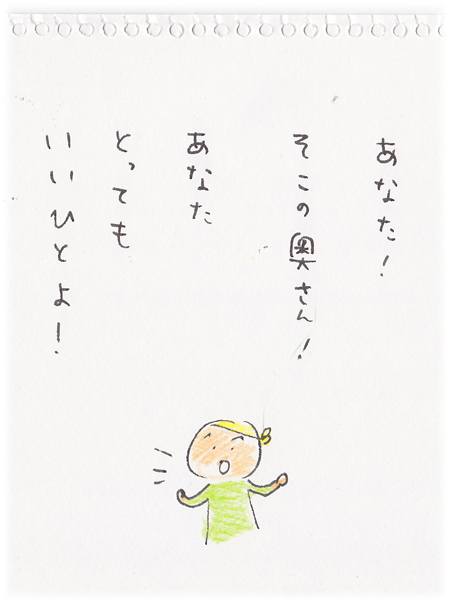 あなた！
そこの奥さん！
あなた
とっても
いいひとよ！